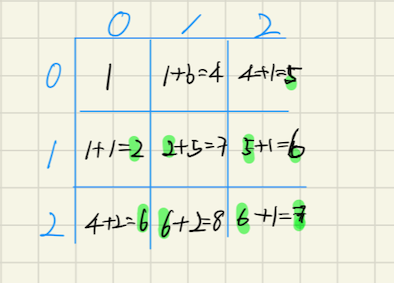 0 1 2
0 1 1+6=4 4+1=5
1 1+1=2 2+5=7 5+1=6
2 4+2=6 6+2=8 6+1=7